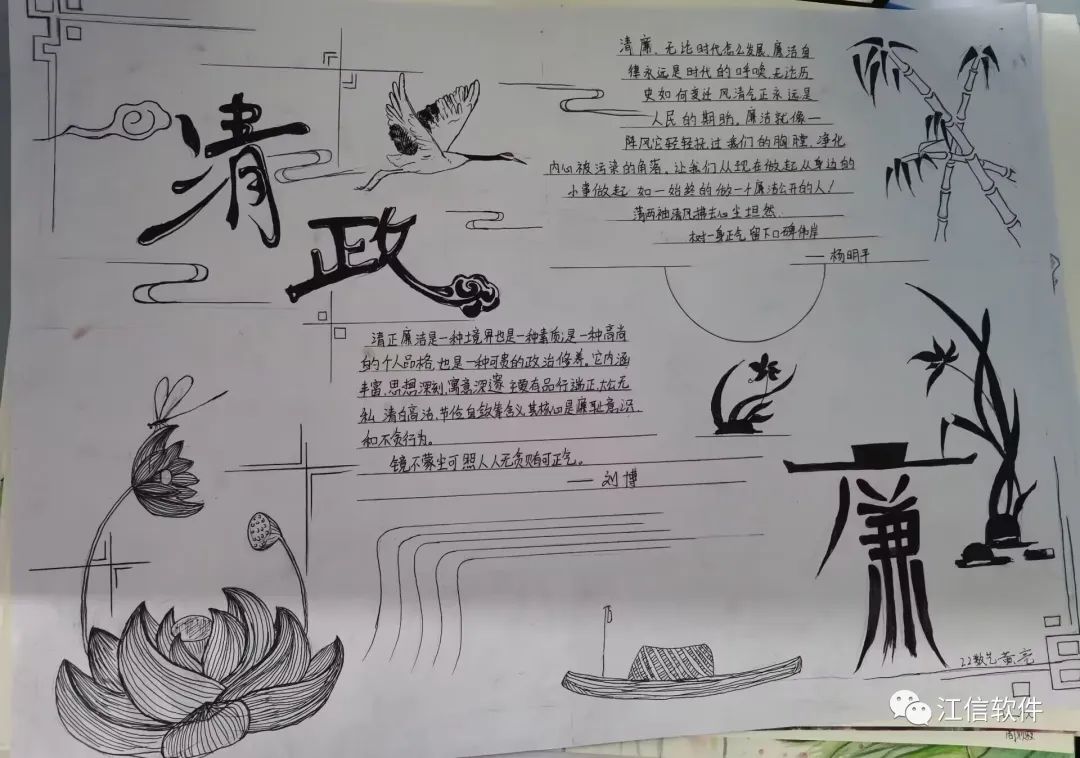 清政
清廉,无论时代怎么发展,廉洁自
律永远是时代的呼唤,无论历
史如何变迁,风清气正永远是
人民的期盼,廉洁就像一
阵风它轻轻抚过我们的胸膛,净化
内心被污染的角落,让我们从现在做起从身边的
小事做起,如一始终的做一个廉洁公开的人!
荡两袖清风拂去心尘坦然,
树一身正气留下口碑伟岸
——杨明平
清正廉洁是一种境界也是一种素质;是一种高尚
的个人品格,也是一种可贵的政治修养。它内涵
丰富、思想深刻、寓意深邃,主要有品行端正、大公无
私、清白高洁、节俭自敛等含义,其核心是廉耻意识,
和不贪行为。
镜不蒙尘可照人人无贪贿可正气。
——刘博
廉
22数艺黄亮
江信软件